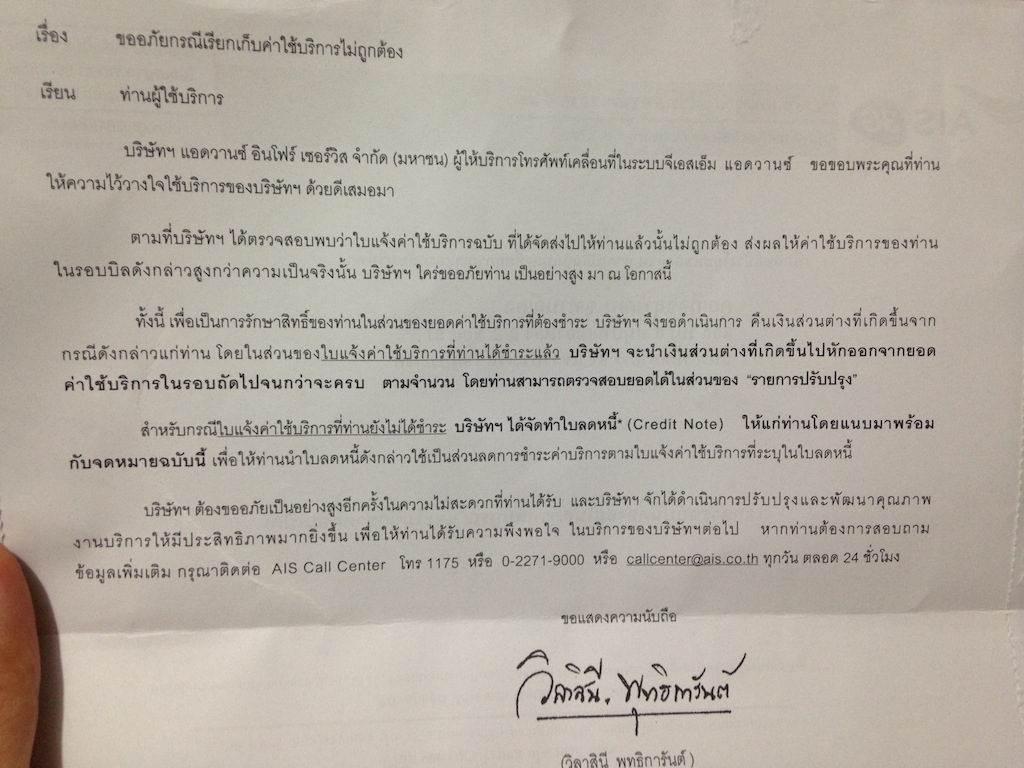 เรื่อง ขออภัยกรณีเรียกเก็บค่าใช้บริการไม่ถูกต้อง
เรียน ท่านผู้ใช้บริการ
บริษัทฯ แอดวานซ์ อินโฟร์ เซอร์วิส จำกัด (มหาชน) ผู้ให้บริการโทรศัพท์เคลื่อนที่ในระบบจีเอสเอ็ม แอดวานซ์ ขอขอบพระคุณที่ท่าน
ให้ความไว้วางใจใช้บริการของบริษัทฯ ด้วยดีเสมอมา
ตามที่บริษัทฯ ได้ตรวจสอบพบว่าใบแจ้งค่าใช้บริการฉบับ ที่ได้จัดส่งไปให้ท่านแล้วนั้นไม่ถูกต้อง ส่งผลให้ค่าใช้บริการของท่าน
ในรอบบิลดังกล่าวสูงกว่าความเป็นจริงนั้น บริษัทฯ ใคร่ขออภัยท่าน เป็นอย่างสูง มา ณ โอกาสนี้
ทั้งนี้ เพื่อเป็นการรักษาสิทธิ์ของท่านในส่วนของยอดค่าใช้บริการที่ต้องชำระ บริษัทฯ จึงขอดำเนินการ คืนเงินส่วนต่างที่เกิดขึ้นจาก
กรณีดังกล่าวแก่ท่าน โดยในส่วนของใบแจ้งค่าใช้บริการที่ท่านได้ชำระแล้ว บริษัทฯ จะนำเงินส่วนต่างที่เกิดขึ้นไปหักออกจากยอด
ค่าใช้บริการในรอบถัดไปจนกว่าจะครบ ตามจำนวน โดยท่านสามารถตรวจสอบยอดได้ในส่วนของ "รายการปรับปรุง"
สำหรับกรณีใบแจ้งค่าใช้บริการที่ท่านยังไม่ได้ชำระ บริษัทฯ ได้จัดทำใบลดหนี้* (Credit Note) ให้แก่ท่านโดยแนบมาพร้อม
กับจดหมายฉบับนี้ เพื่อให้ท่านนำใบลดหนี้ดังกล่าวใช้เป็นส่วนลดการชำระค่าบริการตามใบแจ้งค่าใช้บริการที่ระบุในใบลดหนี้
บริษัทฯ ต้องขออภัยเป็นอย่างสูงอีกครั้งในความไม่สะดวกที่ท่านได้รับ และบริษัทฯ จักได้ดำเนินการปรับปรุงและพัฒนาคุณภาพ
งานบริการให้มีประสิทธิภาพมากยิ่งขึ้น เพื่อให้ท่านได้รับความพึงพอใจ ในบริการของบริษัทฯต่อไป หากท่านต้องการสอบถาม
ข้อมูลเพิ่มเติม กรุณาติดต่อ AIS Call Center โทร 1175 หรือ 0-2271-9000 หรือ callcenter@ais.co.th ทุกวัน ตลอด 24 ชั่วโมง
ขอแสดงความนับถือ
วิลาสินี พุทธิการันต์
(วิลาสินี พุทธิการันต์)